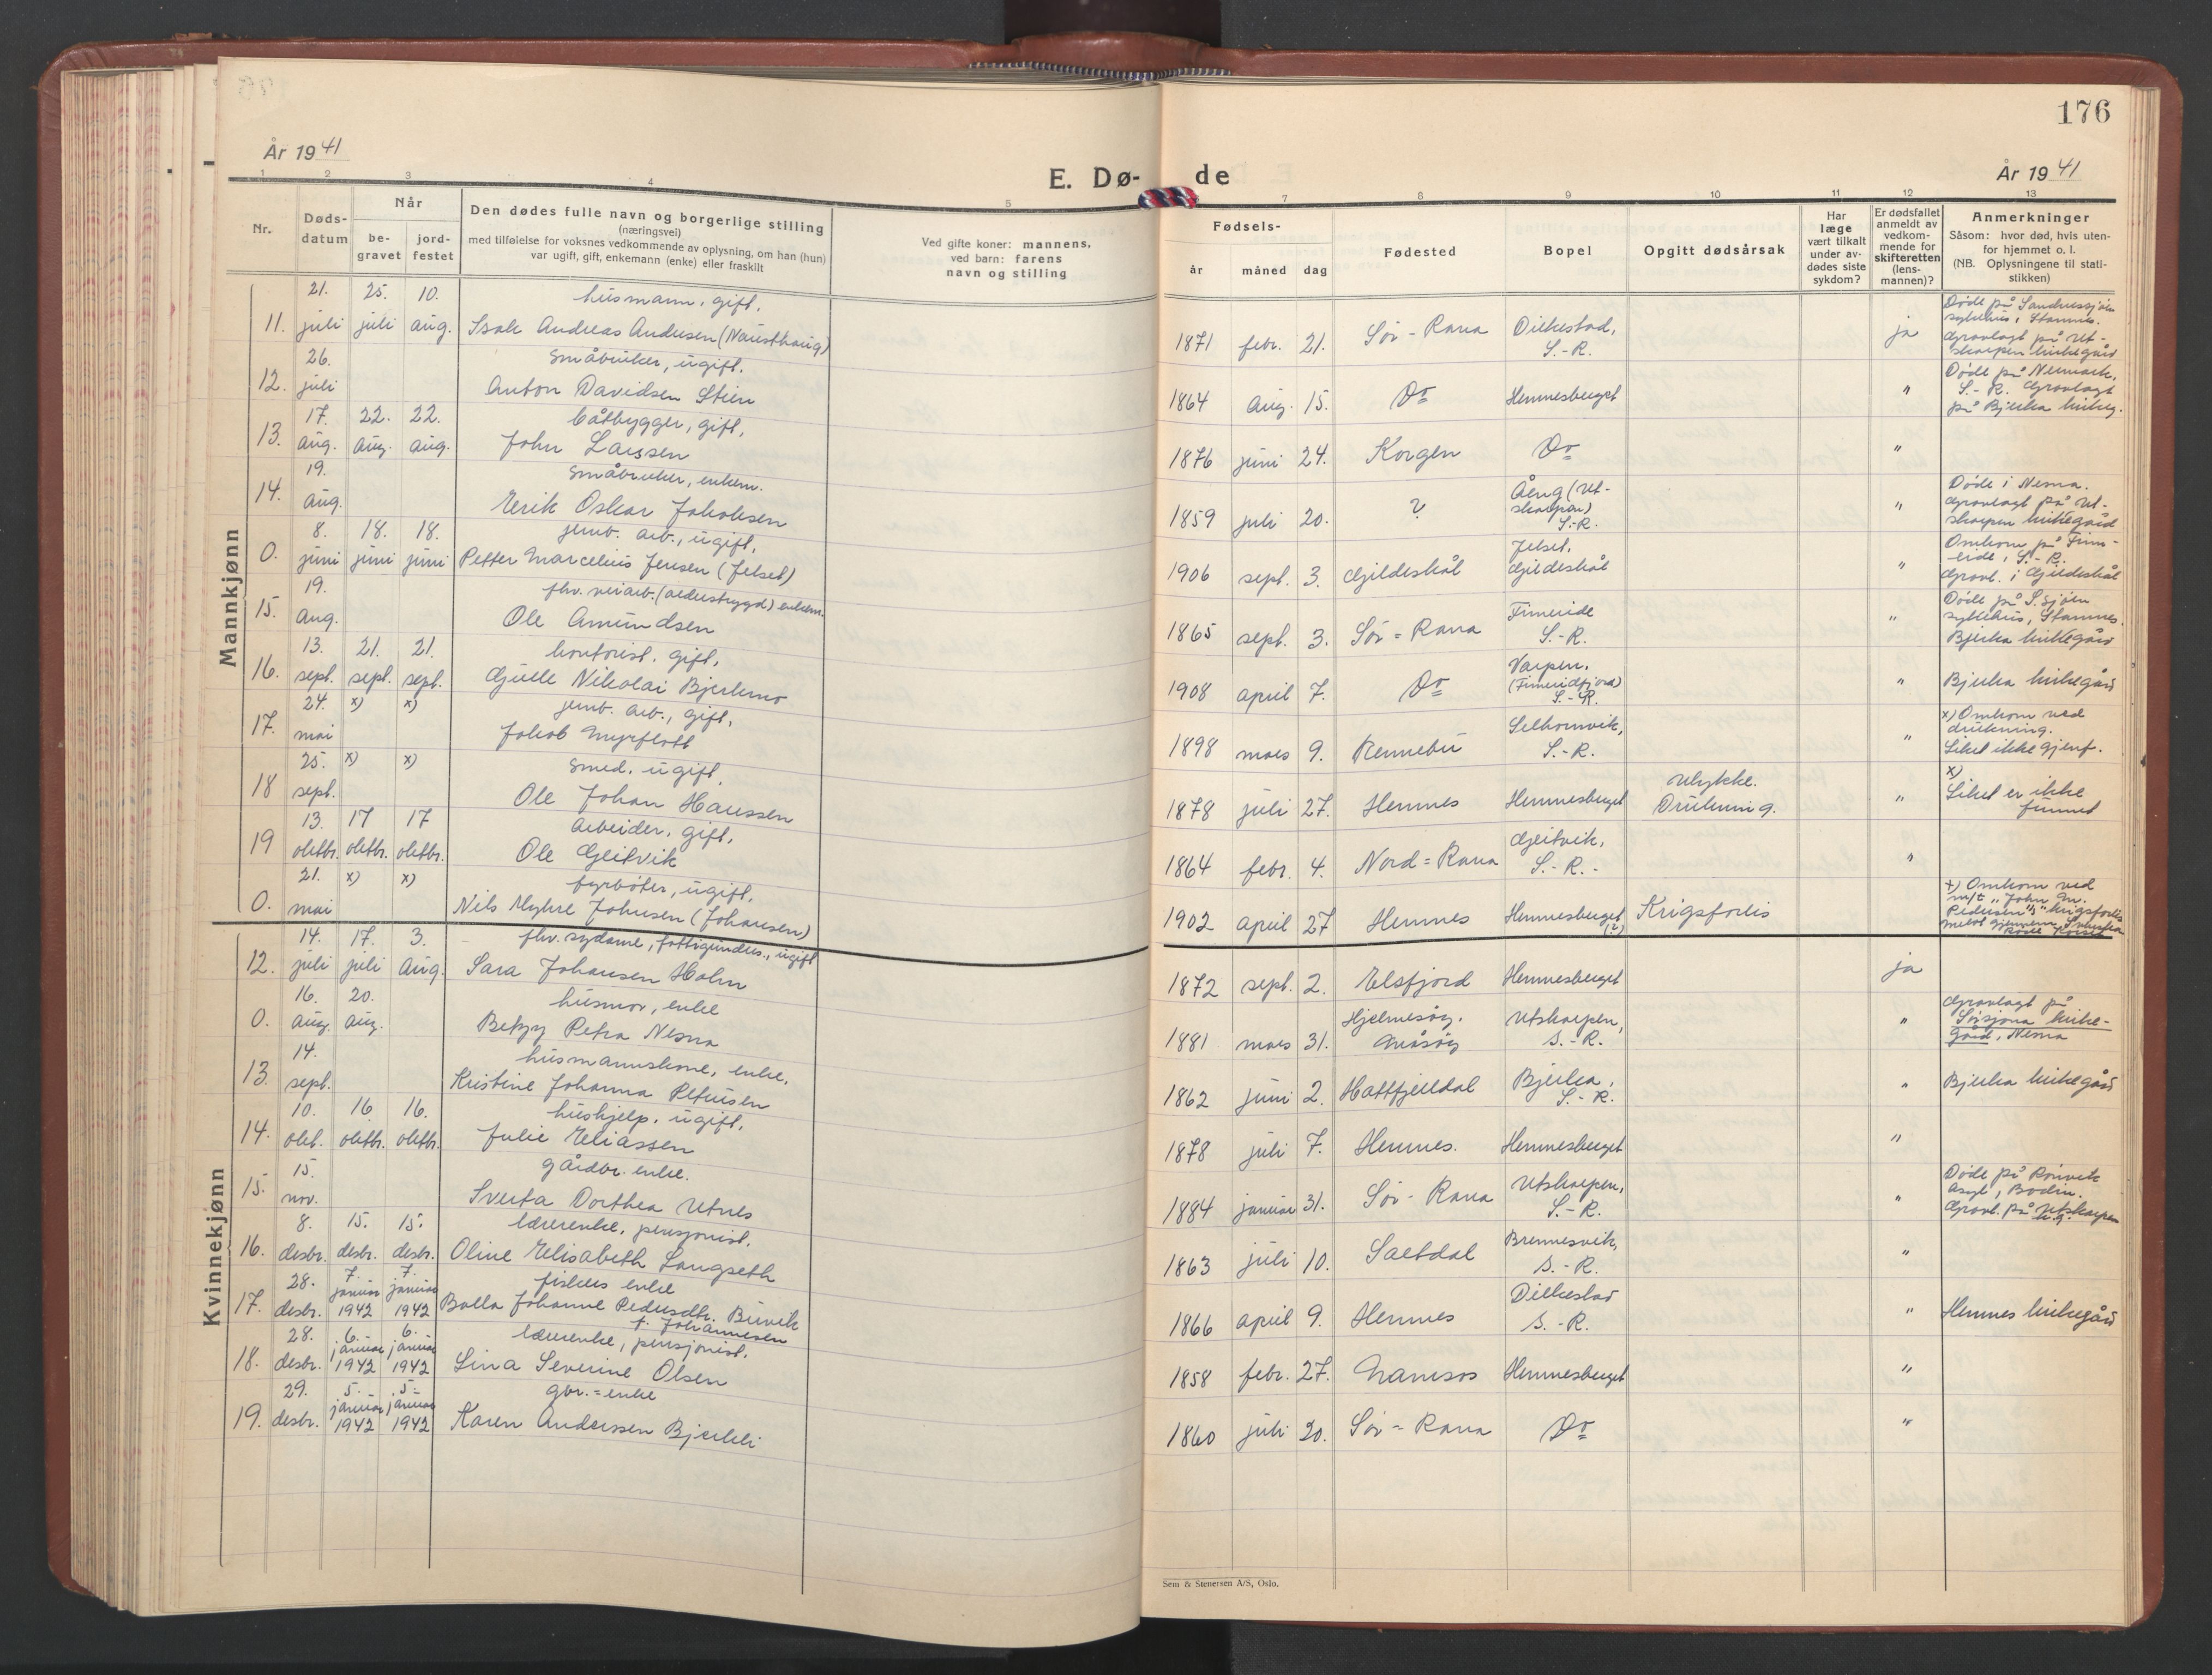 176
År 1941
E. Dø- de
År 1941
1 2 3 4 5 7 8 9 10 11 12 13
Nr.
Døds-
datum
Når
be-
gravet
jord-
festet
Den dødes fulle navn og borgerlige stilling
(næringsvei)
med tilføielse for voksnes vedkommende av oplysning, om han (hun)
var ugift, gift, enkemann (enke) eller fraskilt
Ved gifte koner: mannens,
ved barn: farens
navn og stilling
Fødsels-
år måned dag
Fødested
Bopel
Opgitt dødsårsak
Har
læge
vært tilkalt
under av-
dødes siste
sykdom?
Er dødsfallet
anmeldt av
vedkom-
mende for
skifteretten
(lens-
mannen)?
Anmerkninger
Såsom: hvor død, hvis uten-
for hjemmet o. l.
(NB. Oplysningene til stati-
stikken)
Mannkjønn
11. 21. juli 25. juli 10. aug. husmann, gift.
Isak Andreas Andersen (Nausthaug)
1871 febr. 21. Sør-Rana Dilkestad, S.-R. ja
Døde på Sandnessjøen
sykehus, Stamnes.
Gravlagt på Ut-
skarpen kirkegård
12. 26. juli småbruker, ugift.
Anton Davidsen Stien
1864 aug. 15. Do Hemnesberget "
Døde på Neumark,
S.-R. Gravlagt
på Bjerka kirkeg.
13. 17. aug. 22. aug. 22. aug. båtbygger, gift,
John Larssen
1876 juni 24. Korgen Do "
14. 19. aug. småbruker, enkem.
Erik Oskar Jakobsen
1859 juli 20. ? Åeng (Ut-
skarpen)
S.-R. "
Døde i Nesna.
Gravlagt på Ut-
skarpen kirkegård
0. 8. juni 18. juni 18. juni jernb. arb., ugift,
Petter Marcelius Jensen (Jelset)
1906 sept. 3. Gildeskål Jelset,
Gildeskål "
Omkom på Finn-
eide, S.-R.
Gravl. i Gildeskål
15. 19. aug. fhv. veiarb. (alderstrygd) enkem.
Ole Amundsen
1865 sept. 3. Sør-Rana Finneide
S.-R. "
Døde på S.sjøen
sykehus, Stamnes.
Bjerka kirkegård
16. 13. sept. 21. sept. 21. sept. kontorist, gift,
Nikolai Bjerkmo
1908 april 7. Do Varpen,
(Finneidfjord)
S.-R. "
Bjerka kirkegård
17. 24. mai x) x) jernb. arb., gift,
Jakob Myrflott
1898 mars 9. Rennebu
S.-R. "
x) Omkom ved
drukning.
Liket ikke gjenf.
18 25. sept. x) x) smed, ugift,
Ole Johan Hanssen
1878 juli 27. Hemnes Hemnesberget Ulykke.
Drukning. "
x)
Liket er ikke
funnet
19 13. oktbr. 17 oktbr. 17 oktbr. arbeider, gift,
Ole Geitvik
1864 febr. 4. Nord-Rana Geitvik,
S.-R.- "
0. 21. mai x) x) fyrbøter, ugift,
Nils Myhre Johnsen (Johansen)
1902 april 27 Hemnes Hemnesberget (?) Krigsforlis
x) Omkom ved
m/t "John M.
Pedersen"s krigsforlis
meldt gjennem Svenska
Røde Korset
Kvinnekjønn
12. 14. juli 17. juli 3. aug. fhv. sydame, fattigunders., ugift
Sara Johansen Holm
1872 sept. 2. Elsfjord Hemnesberget ja
0. 16. aug. 20. aug. husmor, enke
Betzy Petra Nesna
1881 mars 31. Hjelmesøy,
Måsøy Utskarpen,
S.-R. "
Gravlagt på
Sørsjona kirke-
gård, Nesna
13. 14. sept. husmannskone, enke,
Kristine Johanna Petersen
1862 juni 2. Hattfjelldal Bjerka,
S.-R. "
Bjerka kirkegård
14. 10. okt. 16 oktbr. 16. oktbr. hushjelp, ugift,
Julie Eliassen
1878 juli 7. Hemnes. Hemnesberget "
15. 15. nov. gårdbr. enke.
Sverta Dorthea Utnes
1884 januar 31. Sør-Rana Utskarpen,
S.-R. "
Døde på Rønvik
Asyl, Bodin.
Gravl. på Utskarpen
k.g.
16. 8. desbr. 15. desbr. 15. desbr. lærerenke, pensjonist.
Oline Elisabeth Langseth
1863 juli 10. Saltdal Brennesvik,
S.-R. "
17. 28. desbr. 7. januar 1942 7. januar 1942 fiskers enke
Bolla Johanne Pedersdtr. Buvik
f. Johannesen
1866 april 9. Hemnes Dilkestad
S.-R. "
Hemnes kirkegård
18. 28. desbr. 6. januar 1942 6. januar 1942 lærerenke, pensjonist.
Lina Severine Olsen
1858 febr. 27. Namsos Hemnesberget "
19. 29. desbr. 5. januar 1942 5. januar 1942 gbr.-enke
Karen Anderssen Bjerkli
1860 juli 20. Sør-Rana Do "
Sem & Stenersen A/S, Oslo.